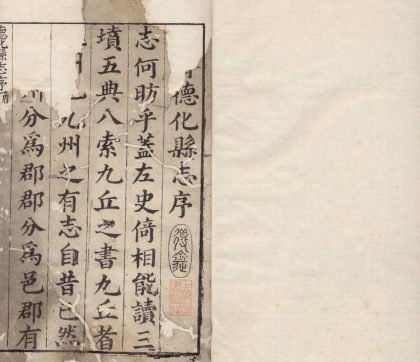 德化縣志序
志何昉乎蓋左史倚相能讀三
墳五典八索九丘之書九丘者
九州之有志自昔已然
分爲郡郡分爲邑郡有
德化縣志序